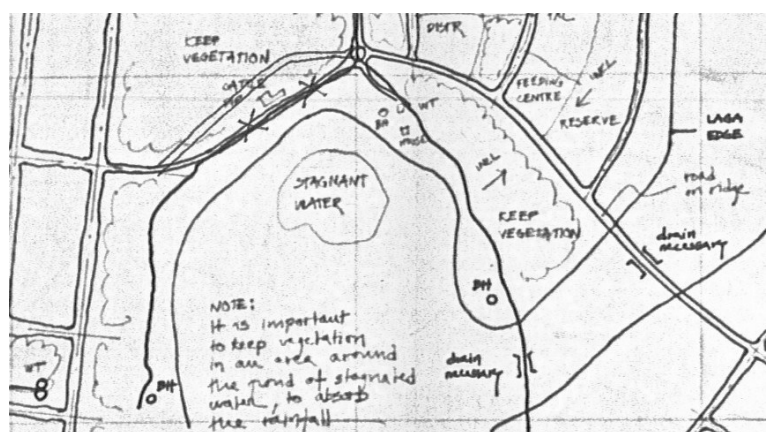 KEEP
VEGETATION
DISTR
FEEDING
CENTRE
INCL
RESERVE
LAGA
EDGE
road
on ridge
drain
necessary
WT
BH
STAGNANT
WATER
INCL
KEEP
VEGETATION
BH
NOTE:
It is important
to keep vegetation
in an area around
the pond of stagnated
water, to absorb
the rainfall
drain
necessary
WT
BH